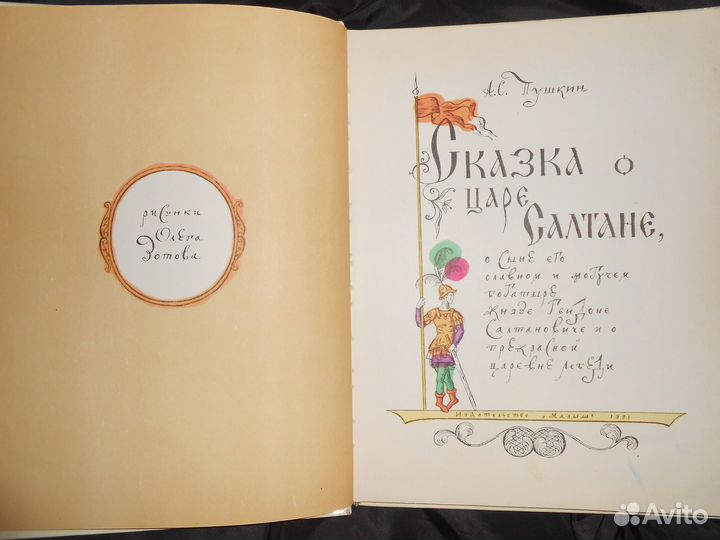 рисунки
Олега
Зотова
А.С. Пушкин
Сказка о
царе
Салтане,
о сыне его
славном и могучем
богатыре
князе Гвидоне
Салтановиче и о
прекрасной
царевне лебеди
Издательство "Малыш" 1981
Avito